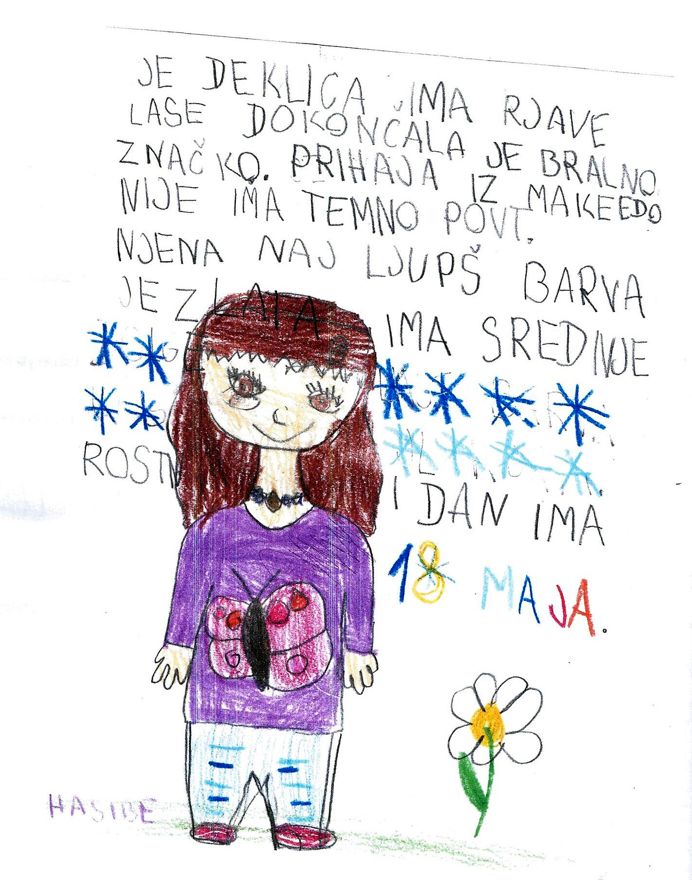 JE DEKLICA IMA RJAVE
LASE DOKONČALA JE BRALNO
ZNAČKO. PRIHAJA IZ MAKEEDO
NIJE IMA TEMNO POVT.
NJENA NAJ LJUPŠ BARVA
JE ZLATA IMA SREDNJE
I DAN IMA
18 MAJA.
HASIBE